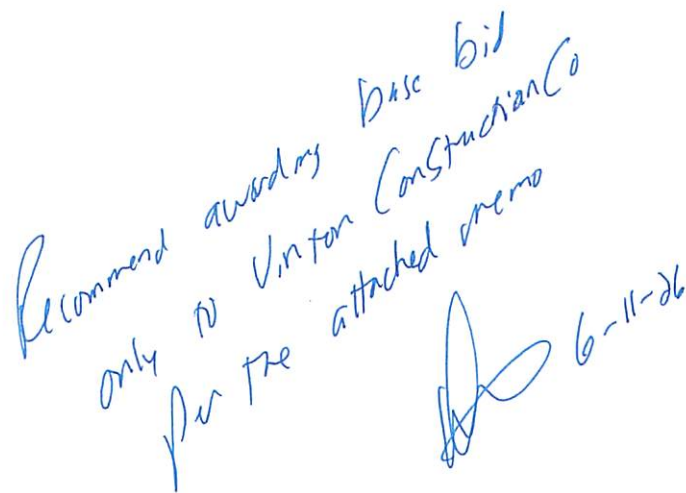 Recommend awarding base bid
only to Vinton Construction Co
per the attached memo
6-11-26